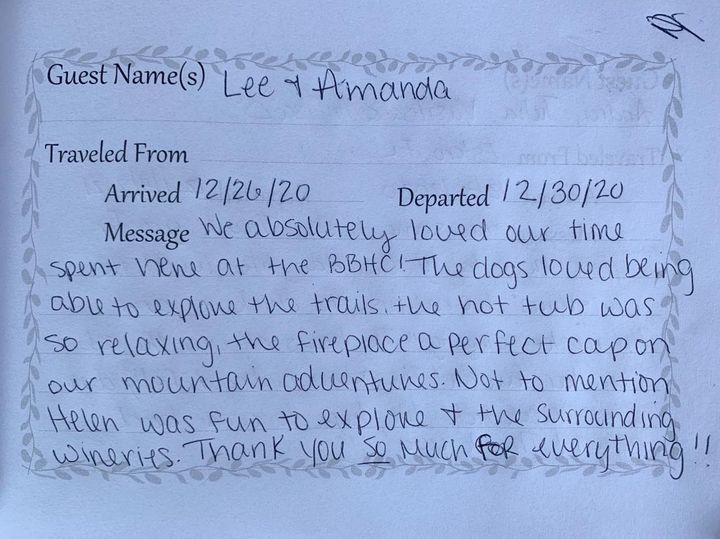 Guest Name(s) Lee & Amanda
Traveled From
Arrived 12/26/20 Departed 12/30/20
Message We absolutely loved our time
spent here at the BBHC! The dogs loved being
able to explore the trails, the hot tub was
so relaxing, the fireplace a perfect cap on
our mountain adventures. Not to mention
Helen was fun to explore & the surrounding
wineries. Thank you so much for everything!!